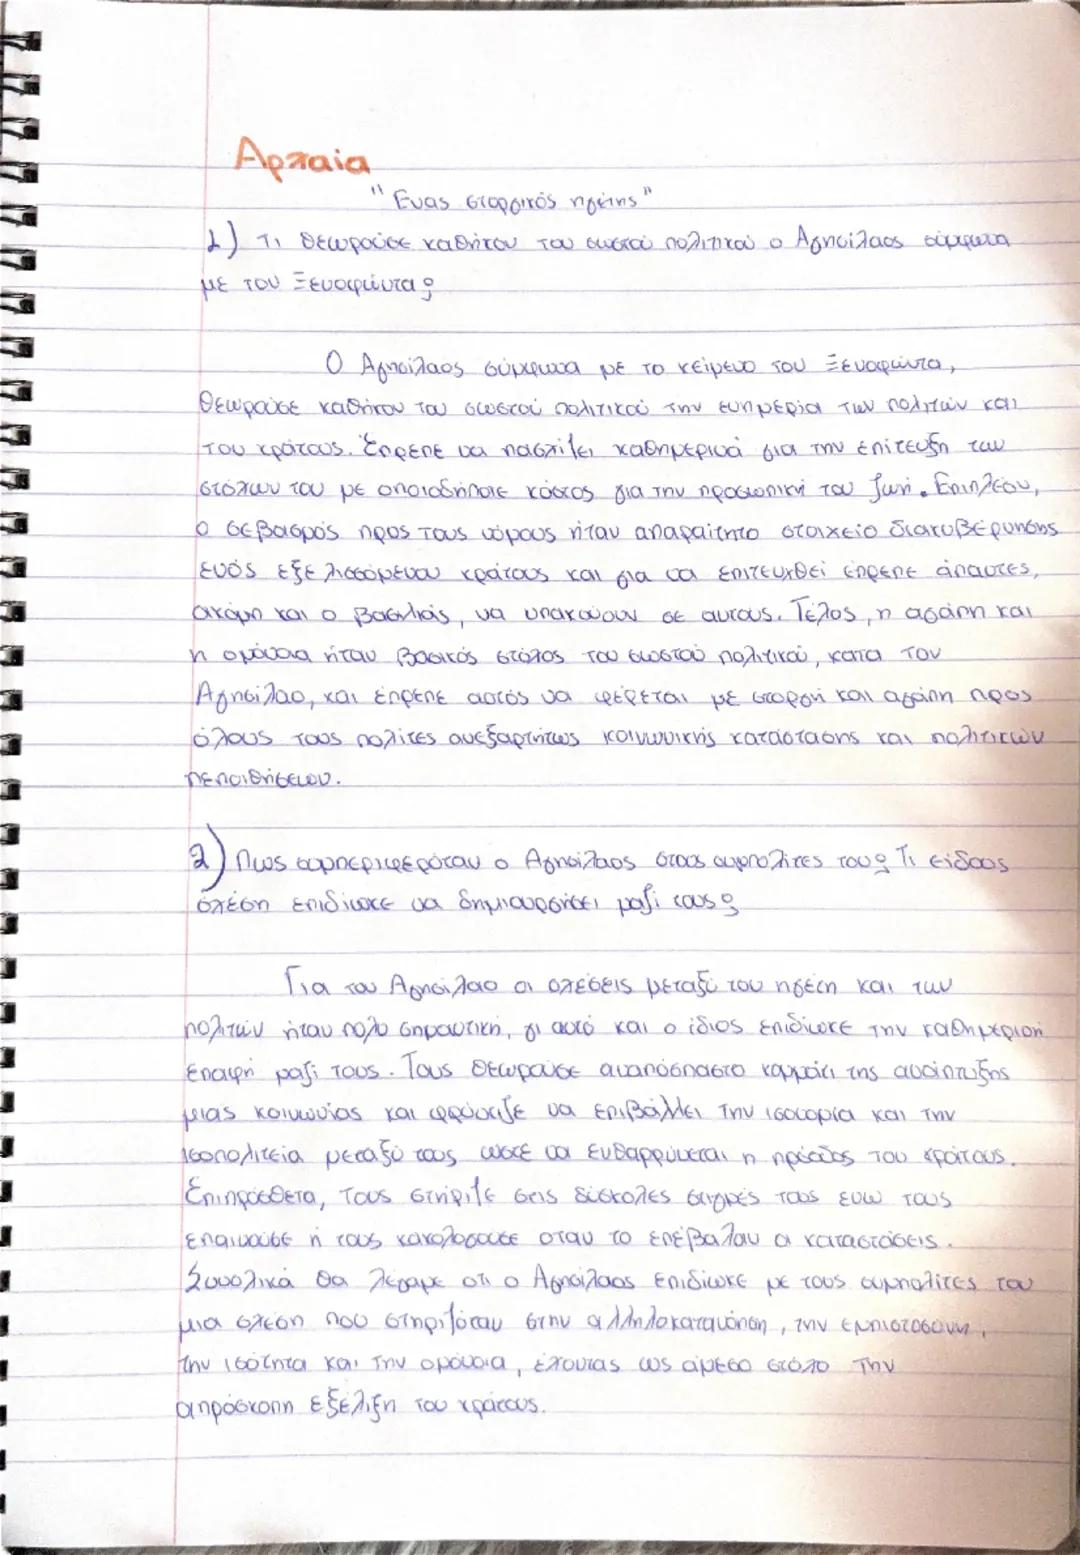 Αρχαία
"Ένας στοργικός ηγέτης"
1) Τι θεωρούσε καθήκον του σωστού πολιτικού ο Αγησίλαος σύμφωνα
με τον Ξενοφώντα;
Ο Αγησίλαος σύμφωνα με το κείμενο του Ξενοφώντα,
θεωρούσε καθήκον του σωστού πολιτικού την ευημερία των πολιτών και
του κράτους. Έπρεπε να πασχίζει καθημερινά για την επίτευξη των
στόχων του με οποιοδήποτε κόστος για την προσωπική του ζωή. Επιπλέον,
ο σεβασμός προς τους νόμους ήταν απαραίτητο στοιχείο διακυβέρνησης
ενός εξελισσόμενου κράτους και για να επιτευχθεί έπρεπε άπαντες,
ακόμη και ο βασιλιάς, να υπακούουν σε αυτούς. Τέλος, η αγάπη και
η ομόνοια ήταν βασικός στόχος του σωστού πολιτικού, κατά τον
Αγησίλαο, και έπρεπε αυτός να φέρεται με στοργή και αγάπη προς
όλους τους πολίτες ανεξαρτήτως κοινωνικής κατάστασης και πολιτικών
πεποιθήσεων.
2) Πως συμπεριφερόταν ο Αγησίλαος στους συμπολίτες του; Τι είδους
σχέση επιδίωκε να δημιουργήσει μαζί τους;
Για τον Αγησίλαο οι σχέσεις μεταξύ του ηγέτη και των
πολιτών ήταν πολύ σημαντική, γι αυτό και ο ίδιος επιδίωκε την καθημερινή
επαφή μαζί τους. Τους θεωρούσε αναπόσπαστο κομμάτι της ανάπτυξης
μιας κοινωνίας και φρόντιζε να επιβάλλει την ισονομία και την
ισοπολιτεία μεταξύ τους ώστε να ενθαρρύνεται η πρόοδος του κράτους.
Επιπρόσθετα, τους στήριζε στις δύσκολες στιγμές τους ενώ τους
επαινούσε ή τους κακολογούσε όταν το επέβαλαν οι καταστάσεις.
Συνολικά θα λέγαμε ότι ο Αγησίλαος επιδίωκε με τους συμπολίτες του
μια σχέση που στηριζόταν στην αλληλοκατανόηση, την εμπιστοσύνη,
την ισότητα και την ομόνοια, έχοντας ως άμεσο στόχο την
απρόσκοπη εξέλιξη του κράτους.